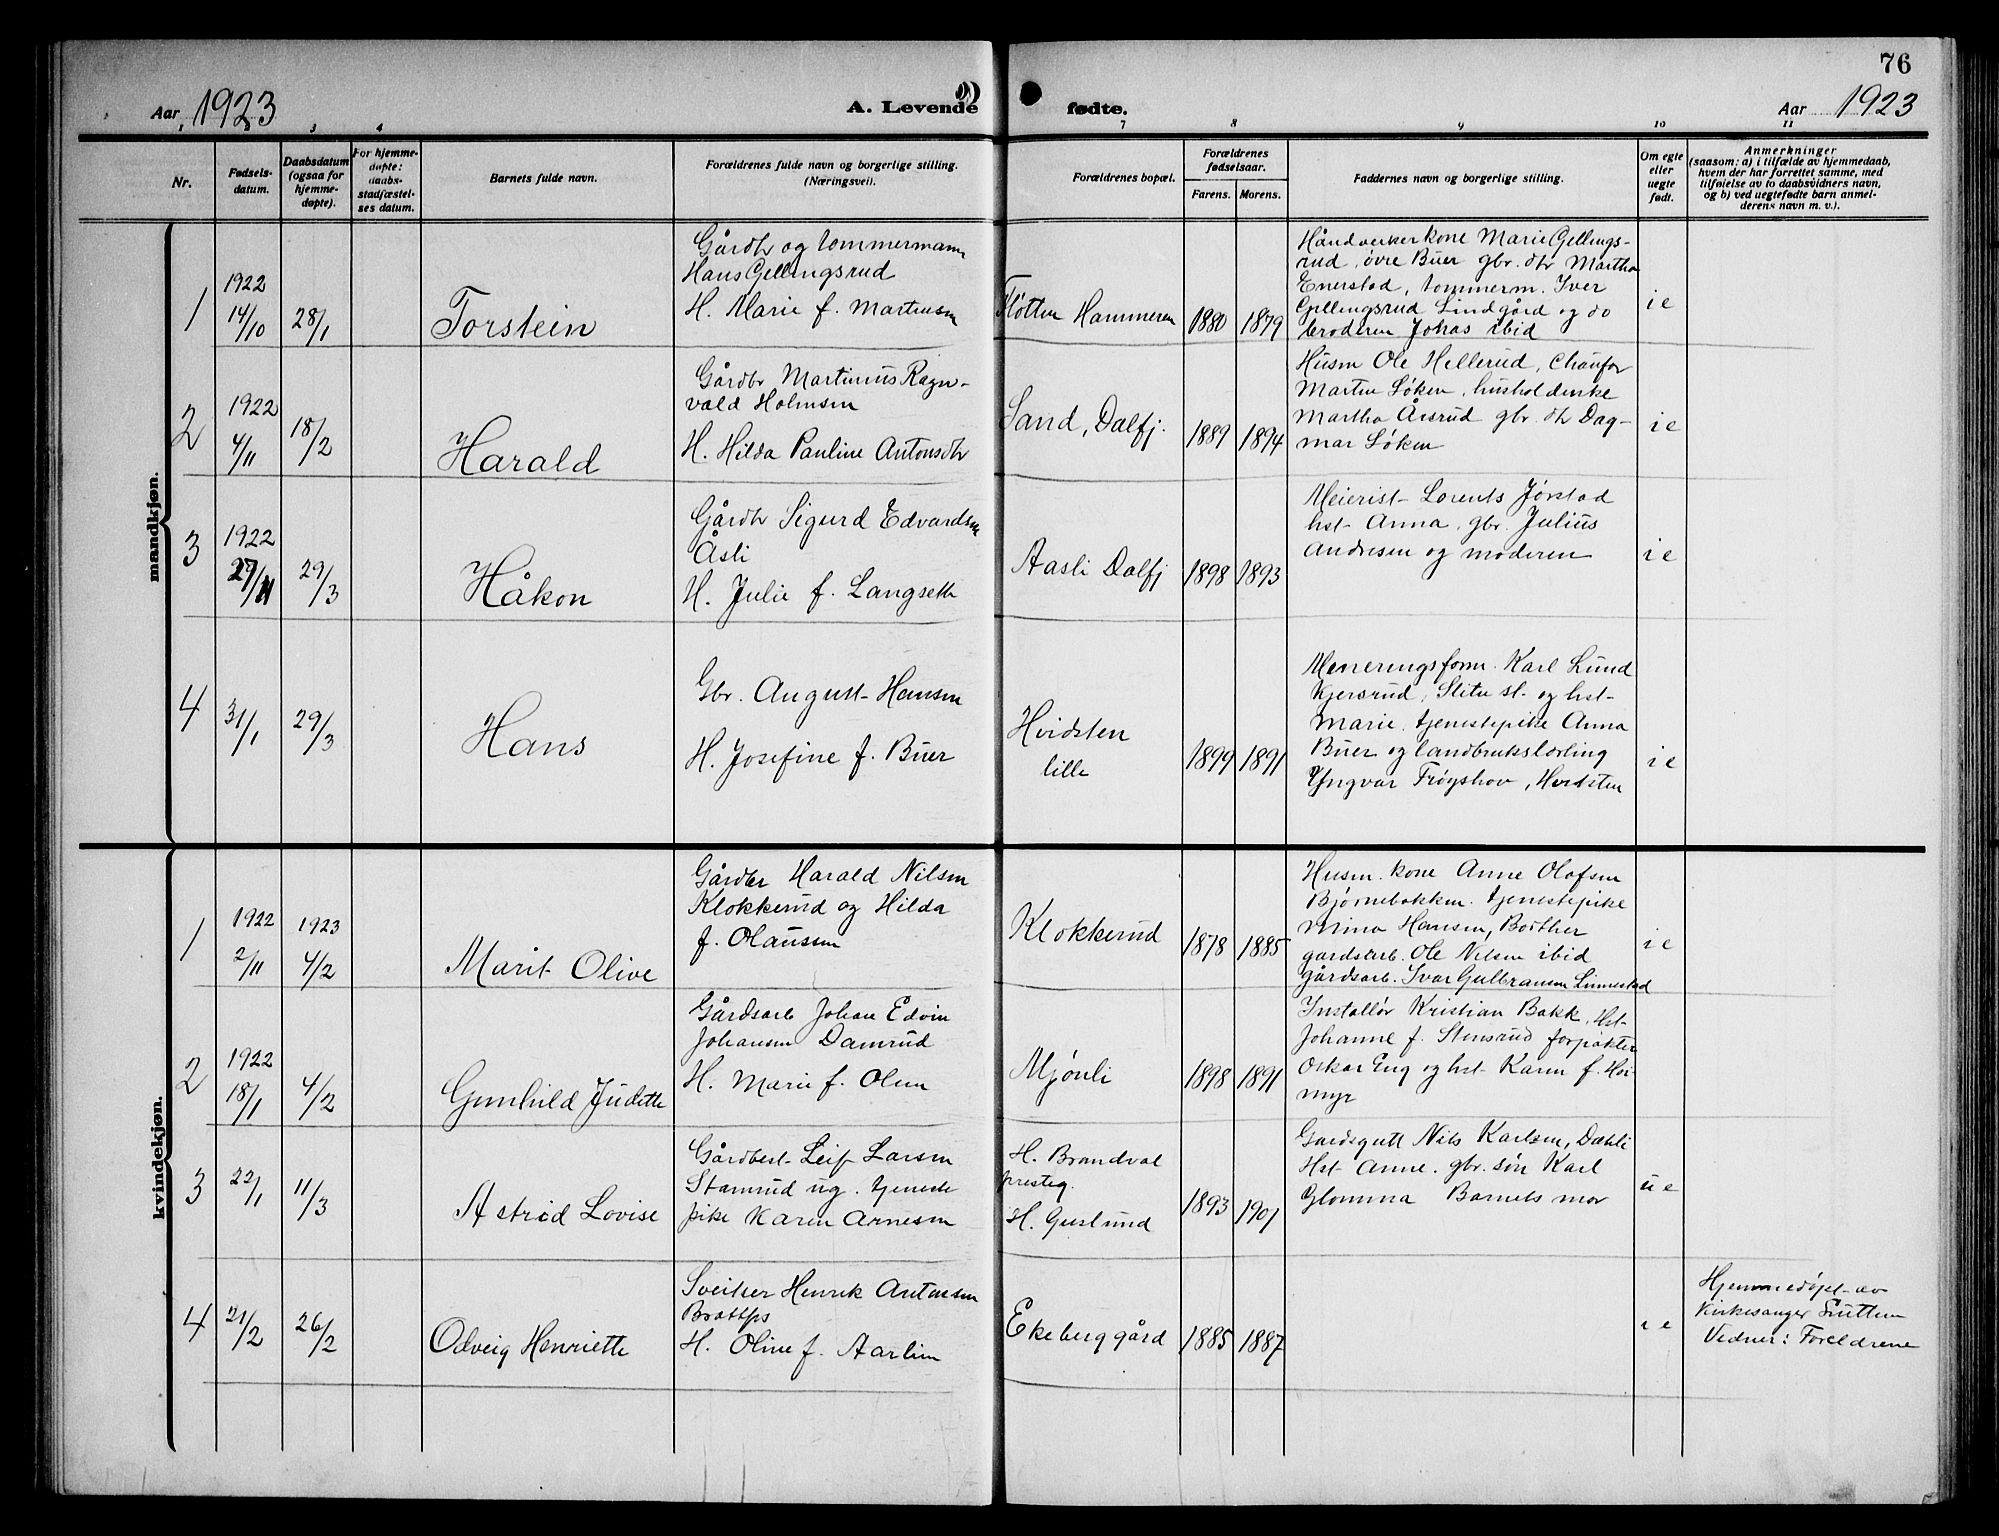 76
Aar 1923 A. Levende fødte. Aar 1923
1 3 4 7 8 9 10 11
Nr.
Fødsels-
datum.
Daabsdatum
(ogsaa for
hjemme-
døpte).
For hjemme-
døpte:
daabs-
stadfæstel-
ses datum.
Barnets fulde navn.
Forældrenes fulde navn og borgerlige stilling.
(Næringsvei).
Forældrenes bopæl.
Forældrenes
fødselsaar.
Farens. Morens.
Faddernes navn og borgerlige stilling.
Om egte
eller
uegte
født.
Anmerkninger
(saasom: a) i tilfælde av hjemmedaab,
hvem der har forrettet samme, med
tilføielse av to daabsvidners navn,
og b) ved uegtefødte barn anmel-
derens navn m. v.).
mandkjøn.
1
1922
14/10
28/1
Torstein
Gårdbr og tømmermann
Hans Gellingsrud
H. Marie f. Martinsen
Hammeren
1880
1879
Håndverker kone Marie Gellings-
rud, øvre Buer gbr. dtr Martha
Enerstad, tømmerm. Iver
Gellingsrud Lindgård og do
broderen Johas ibid
i e
2
1922
4/11
18/2
Harald
Gårdbr Martinius Ragn-
vald Holmsen
H. Hilda Pauline Antonsdtr
Sand, Dalfj.
1889
1894
Husm Ole Hellerud, Chaufør
Martin Løken, husholderske
Martha Årsrud gbr. dtr Dag-
mar Løken
i e
3
1922
27/11
29/3
Håkon
Gårdbr Sigurd Edvardsen
Åsli
H. Julie f. Langseth
Aasli Dalfj
1898
1893
Meierist Lorents Jørstad
hst Anna, gbr. Julius
Andresen og moderen
i e
4
31/1
29/3
Hans
Gbr. August Hansen
H. Josefine f. Buer
Hvidsten
lille
1899
1891
Karl Lund
Kjersrud, Slitu st. og hst
Marie, tjenestepike Anna
Buer og landbrukslærling
Yngvar Frøyshov, Hvidsten
i e
kvindekjøn.
1
1922
2/11
1923
4/2
Marit Olive
Gårdbr Harald Nilsen
Klokkerud og Hilda
f. Olaussen
Klokkerud
1878
1885
Husm. kone Anne Olafsen
Bjørnebakken. tjenestepike
Mina Hansen,
gardsarb. Ole Nilsen ibid
gårdsarb. Ivar Gulbransen Linnestad
i e
2
1922
18/1
4/2
Gunhild Judette
Gårdsarb Johan Edvin
Johansen Damrud
H. Marie f. Olsen
Mjønli
1898
1891
Installør Kristian Bakk, Hst
Johanne f. Stensrud forpakter
Oskar Eng og hst Karen f. Hor-
myr
3
22/1
11/3
Astrid Lovise
Gårdbest Leif Larsen
Stamrud ug. tjeneste
pike Karen Arnesen
H. Brandval
presteg.
H. Guslund
1893
1901
Gardsgutt Nils Karlsen, Dæhli
Hst Anne. gbr. søn Karl
Glomma Barnets mor
u e
4
21/2
26/2
Odveig Henriette
Sveitser Henrik Antonsen
H. Oline f. Aarlien
Ekeberg gård
1885
1887
i e
Hjemmedøpt av
Kirkesanger
Vidner: Foreldrene